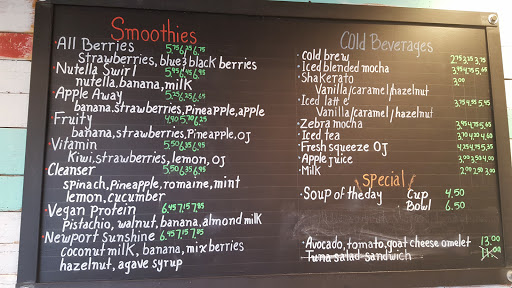 Smoothies
All Berries 5.75 6.35 6.75
strawberries, blue & black berries
Nutella Swirl 5.95 6.45 6.95
nutella, banana, milk
Apple Away 5.25 6.25 6.65
banana, strawberries, Pineapple, apple
Fruity 4.90 5.70 6.25
banana, strawberries, Pineapple, OJ
Vitamin 5.50 6.35 6.95
Kiwi, strawberries, lemon, OJ
Cleanser 5.50 6.35 6.95
spinach, pineapple, romaine, mint
lemon, cucumber
Vegan Protein 6.45 7.15 7.85
Pistachio, walnut, banana, almond milk
Newport Sunshine 6.45 7.15 7.85
coconut milk, banana, mix berries
hazelnut, agave syrup
Cold Beverages
Cold brew 2.75 3.25 3.75
Iced blended mocha 3.95 4.75 5.65
Shakerato 3.00
Vanilla/caramel/hazelnut
Iced latte 3.75 4.55 5.45
Vanilla/caramel/hazelnut
Zebra mocha 3.95 4.75 5.65
Iced tea 3.70 4.20 4.60
Fresh squeeze OJ 4.25 4.75 5.35
Apple juice 3.00 3.50 4.00
Milk 2.00 2.50 3.00
Special
Soup of the day Cup 4.50
Bowl 6.50
Avocado, tomato, goat cheese omelet 13.00
Tuna salad sandwich 11.00